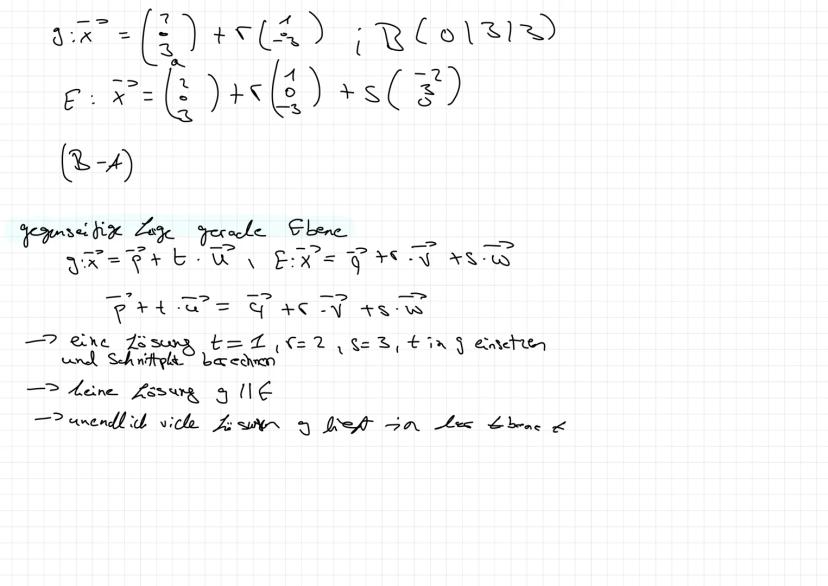 g: x⃗ = (2 0 3) + r (1 0 -3) ; B(0|3|3)
E: x⃗ = (2 0 3) + r (1 0 -3) + s (-2 3 0)
(B-A)
gegenseitige Lage gerade Ebene
g: x⃗ = p⃗ + t · u⃗ , E: x⃗ = q⃗ + r · v⃗ + s · w⃗
p⃗ + t · u⃗ = q⃗ + r · v⃗ + s · w⃗
→ eine Lösung t = 1, r = 2, s = 3, t in g einsetzen
und Schnittpkt berechnen
→ keine Lösung g || E
→ unendlich viele Lösungen g liegt in der Ebene E